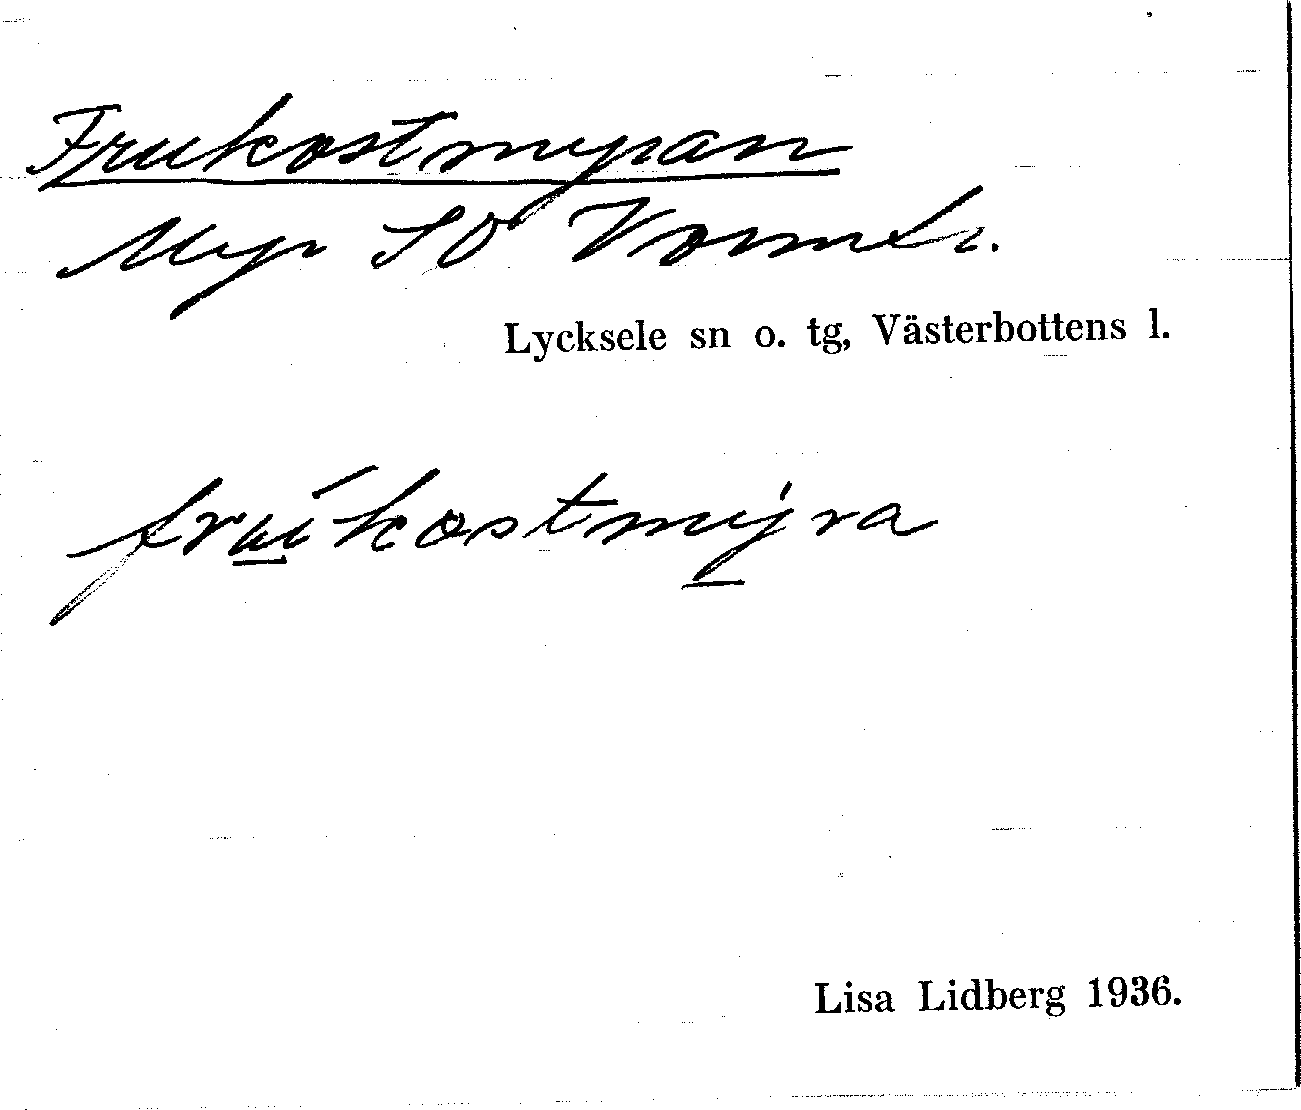 Frukostmyran
Myr SO Vormtr.
Lycksele sn o. tg, Västerbottens l.
frúkostmy̱ra
Lisa Lidberg 1936.